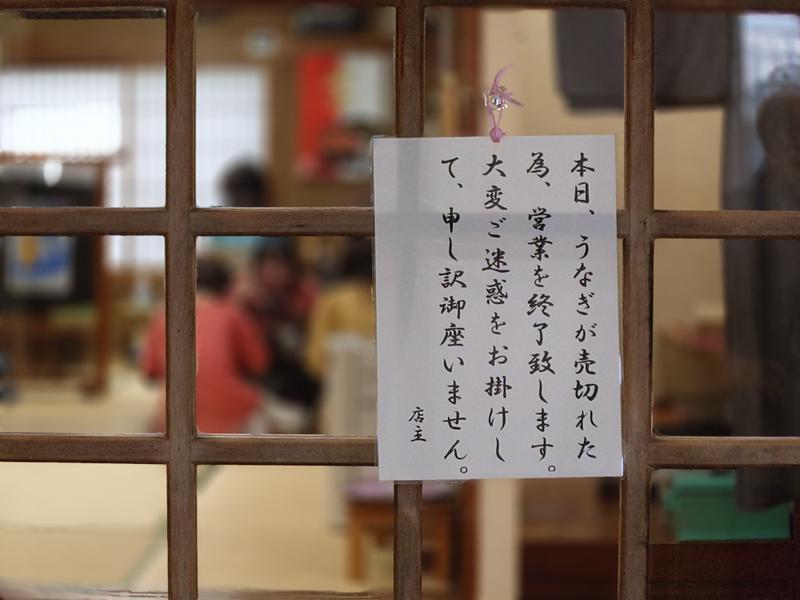 本日、うなぎが売切れた
為、営業を終了致します。
大変ご迷惑をお掛けし
て、申し訳御座いません。
店主